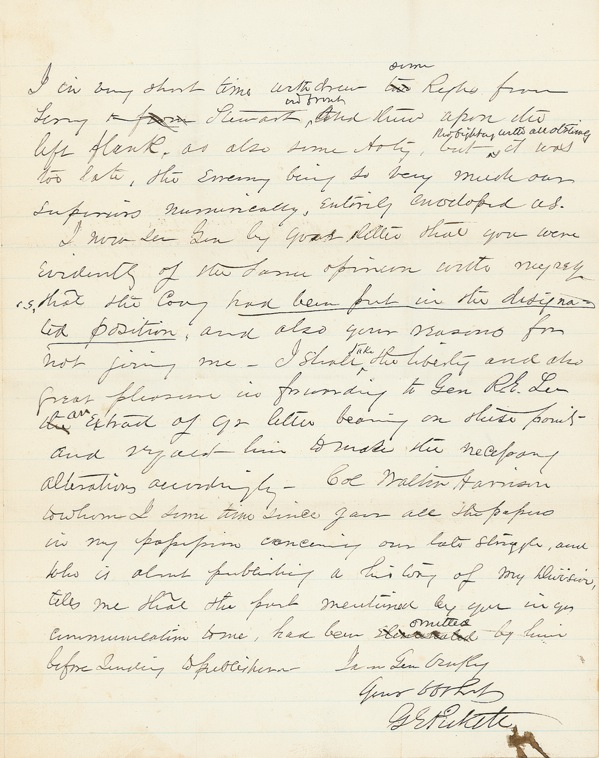 some
I in very short time withdrew two Regts from
in front
Terry & from Stewart, And threw upon the
this fighting with all obstinacy
left flank, as also some Arty, but it was
too late, the Enemy being so very much our
superiors numerically, entirely enveloped us.
I now see Gen by your letter that you were
evidently of the same opinion with myself
i.e., that the Cavy had been put in the designa-
ted position, and also your reasons for
take
not joining me – I shall the liberty and also
great pleasure in forwarding to Gen R.E. Lee
the an Extract of yr letter bearing on these points
and request him to make the necessary
alterations accordingly – Col Walter Harrison
to whom I some time since gave all the papers
in my possession concerning our late struggle, and
who is about publishing a history of my Division,
tells me that the part mentioned by you in yr
omitted
communication to me, had been eliminated by him
before sending to publishers I am Gen very
Your obt Svt
GE Pickett